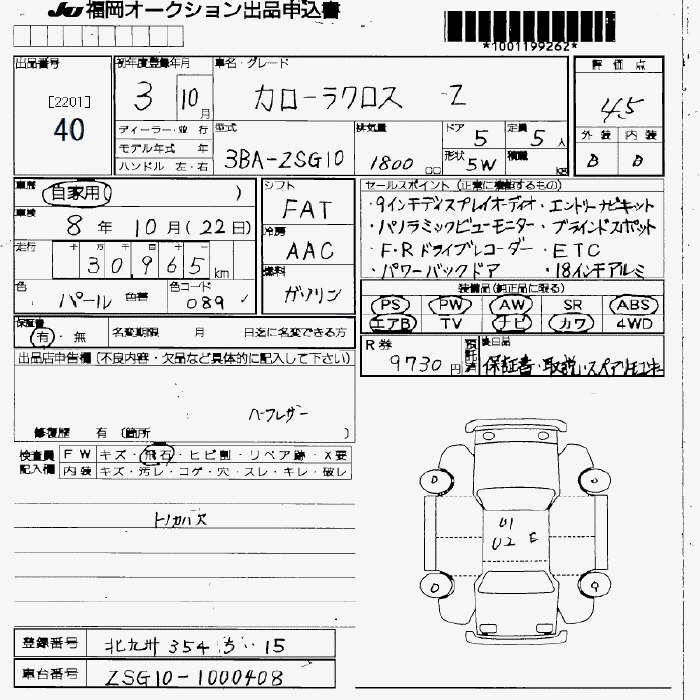 JU 福岡オークション出品申込書
*1001199262*
出品番号
[2201]
40
初年度登録年月
3 10月
車名・グレード
カローラクロス Z
評価点
4.5
外装 内装
B B
ディーラー・並行
モデル年式 年
ハンドル 左・右
型式
3BA-ZSG10
排気量
1800 cc
ドア
5
形状
5W
定員
5人
積載
kg
車歴
自家用 )
車検
8年 10月(22日)
走行
十 万 千 百 十 一
30,965 km
色
パール 色替
色コード
089
シフト
FAT
冷房
AAC
燃料
ガソリン
セールスポイント(正常に機能するもの)
・9インチディスプレイオーディオ・エントリーナビキット
・パノラミックビューモニター・ブラインドスポット
・F・Rドライブレコーダー・ETC
・パワーバックドア ・18インチアルミ
装備品(純正品に限る)
PS PW AW SR ABS
エアB TV ナビ カワ 4WD
保証書
有・無
名変期限 月 日迄に名変できる方
R券
9730円
預託済
後日品
保証書・取説・スペアリモコンキー
出品店申告欄(不良内容・欠品など具体的に記入して下さい)
ハーフレザー
修復歴 有 (箇所 )
検査員記入欄
FW キズ・飛石・ヒビ割・リペア跡・X要
内装 キズ・汚レ・コゲ・穴・スレ・キレ・破レ
トノカバ欠
U1
U2 E
登録番号
北九州 354 ち 15
車台番号
ZSG10-1000408